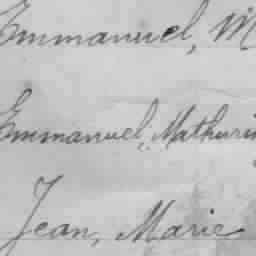 Emmanuel, M
Emmanuel, Mathurin
Jean, Marie